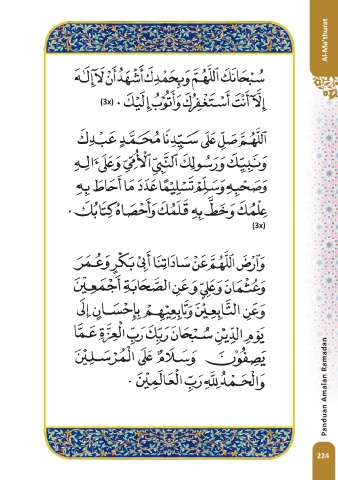 سُبْحَانَكَ اللّٰهُمَّ وَبِحَمْدِكَ أَشْهَدُ أَنْ لَآ إِلٰهَ
إِلَّآ أَنْتَ أَسْتَغْفِرُكَ وَأَتُوْبُ إِلَيْكَ . (3x)
اللّٰهُمَّ صَلِّ عَلَى سَيِّدِنَا مُحَمَّدٍ عَبْدِكَ
وَنَبِيِّكَ وَرَسُولِكَ النَّبِيِّ الْأُمِّيِّ وَعَلَىٰ آلِهِ
وَصَحْبِهِ وَسَلِّمْ تَسْلِيْمًا عَدَدَ مَا أَحَاطَ بِهِ
عِلْمُكَ وَخَطَّ بِهِ قَلَمُكَ وَأَحْصَاهُ كِتَابُكَ .
(3x)
وَآرْضَ اللّٰهُمَّ عَنْ سَادَاتِنَا أَبِيْ بَكْرٍ وَعُمَرَ
وَعُثْمَانَ وَعَلِيٍّ وَعَنِ الصَّحَابَةِ أَجْمَعِيْنَ
وَعَنِ التَّابِعِيْنَ وَتَابِعِيْهِمْ بِإِحْسَانٍ إِلَى
يَوْمِ الدِّيْنِ سُبْحَانَ رَبِّكَ رَبِّ الْعِزَّةِ عَمَّا
يَصِفُوْنَ وَسَلَامٌ عَلَى الْمُرْسَلِيْنَ
وَالْحَمْدُ لِلَّهِ رَبِّ الْعَالَمِيْنَ .
Al-Ma'thurat
Panduan Amalan Ramadan
224